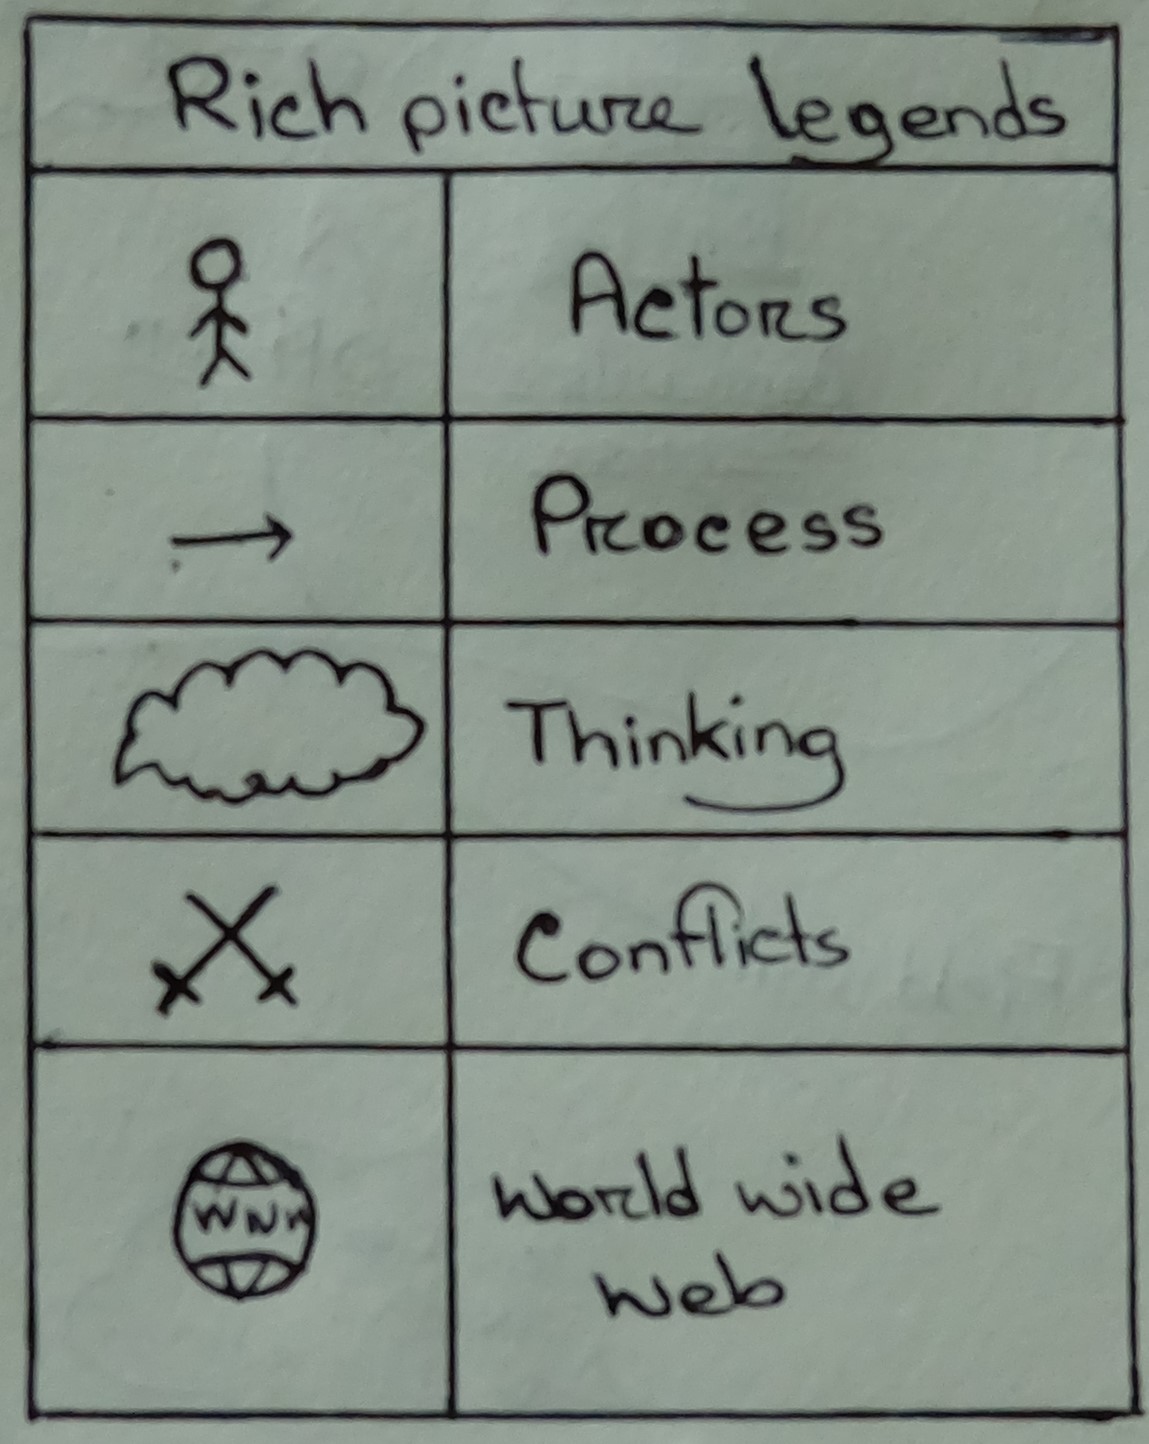 Rich picture legends
Actors
Process
Thinking
Conflicts
WWW
World wide
web